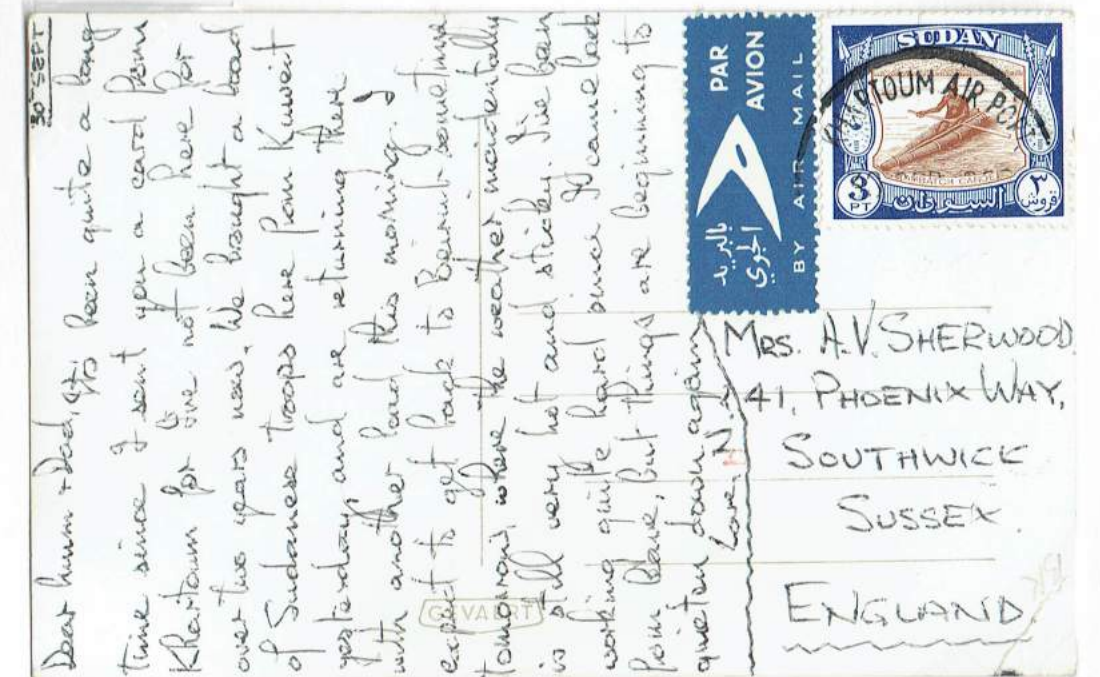 30 SEPT
Dear Mum + Dad,
It's been quite a long
time since I sent you a card from
Khartoum for I've not been here for
over two years now. We brought a load
of Sudanese troops here from Kuwait
yesterday, and are returning there
with another load this morning. I
expect to get back to Beirut sometime
tomorrow, where the weather incidentally
is still very hot and sticky. I've been
working quite hard since I came back
from leave, but things are beginning to
quieten down again
Love,
PAR
AVION
بالبريد
الجوي
BY AIR MAIL
SUDAN
KHARTOUM AIR PO
3
PT
السودان
٣
قروش
MRS. A.V. SHERWOOD
41, PHOENIX WAY,
SOUTHWICK
SUSSEX.
ENGLAND
GEVAERT